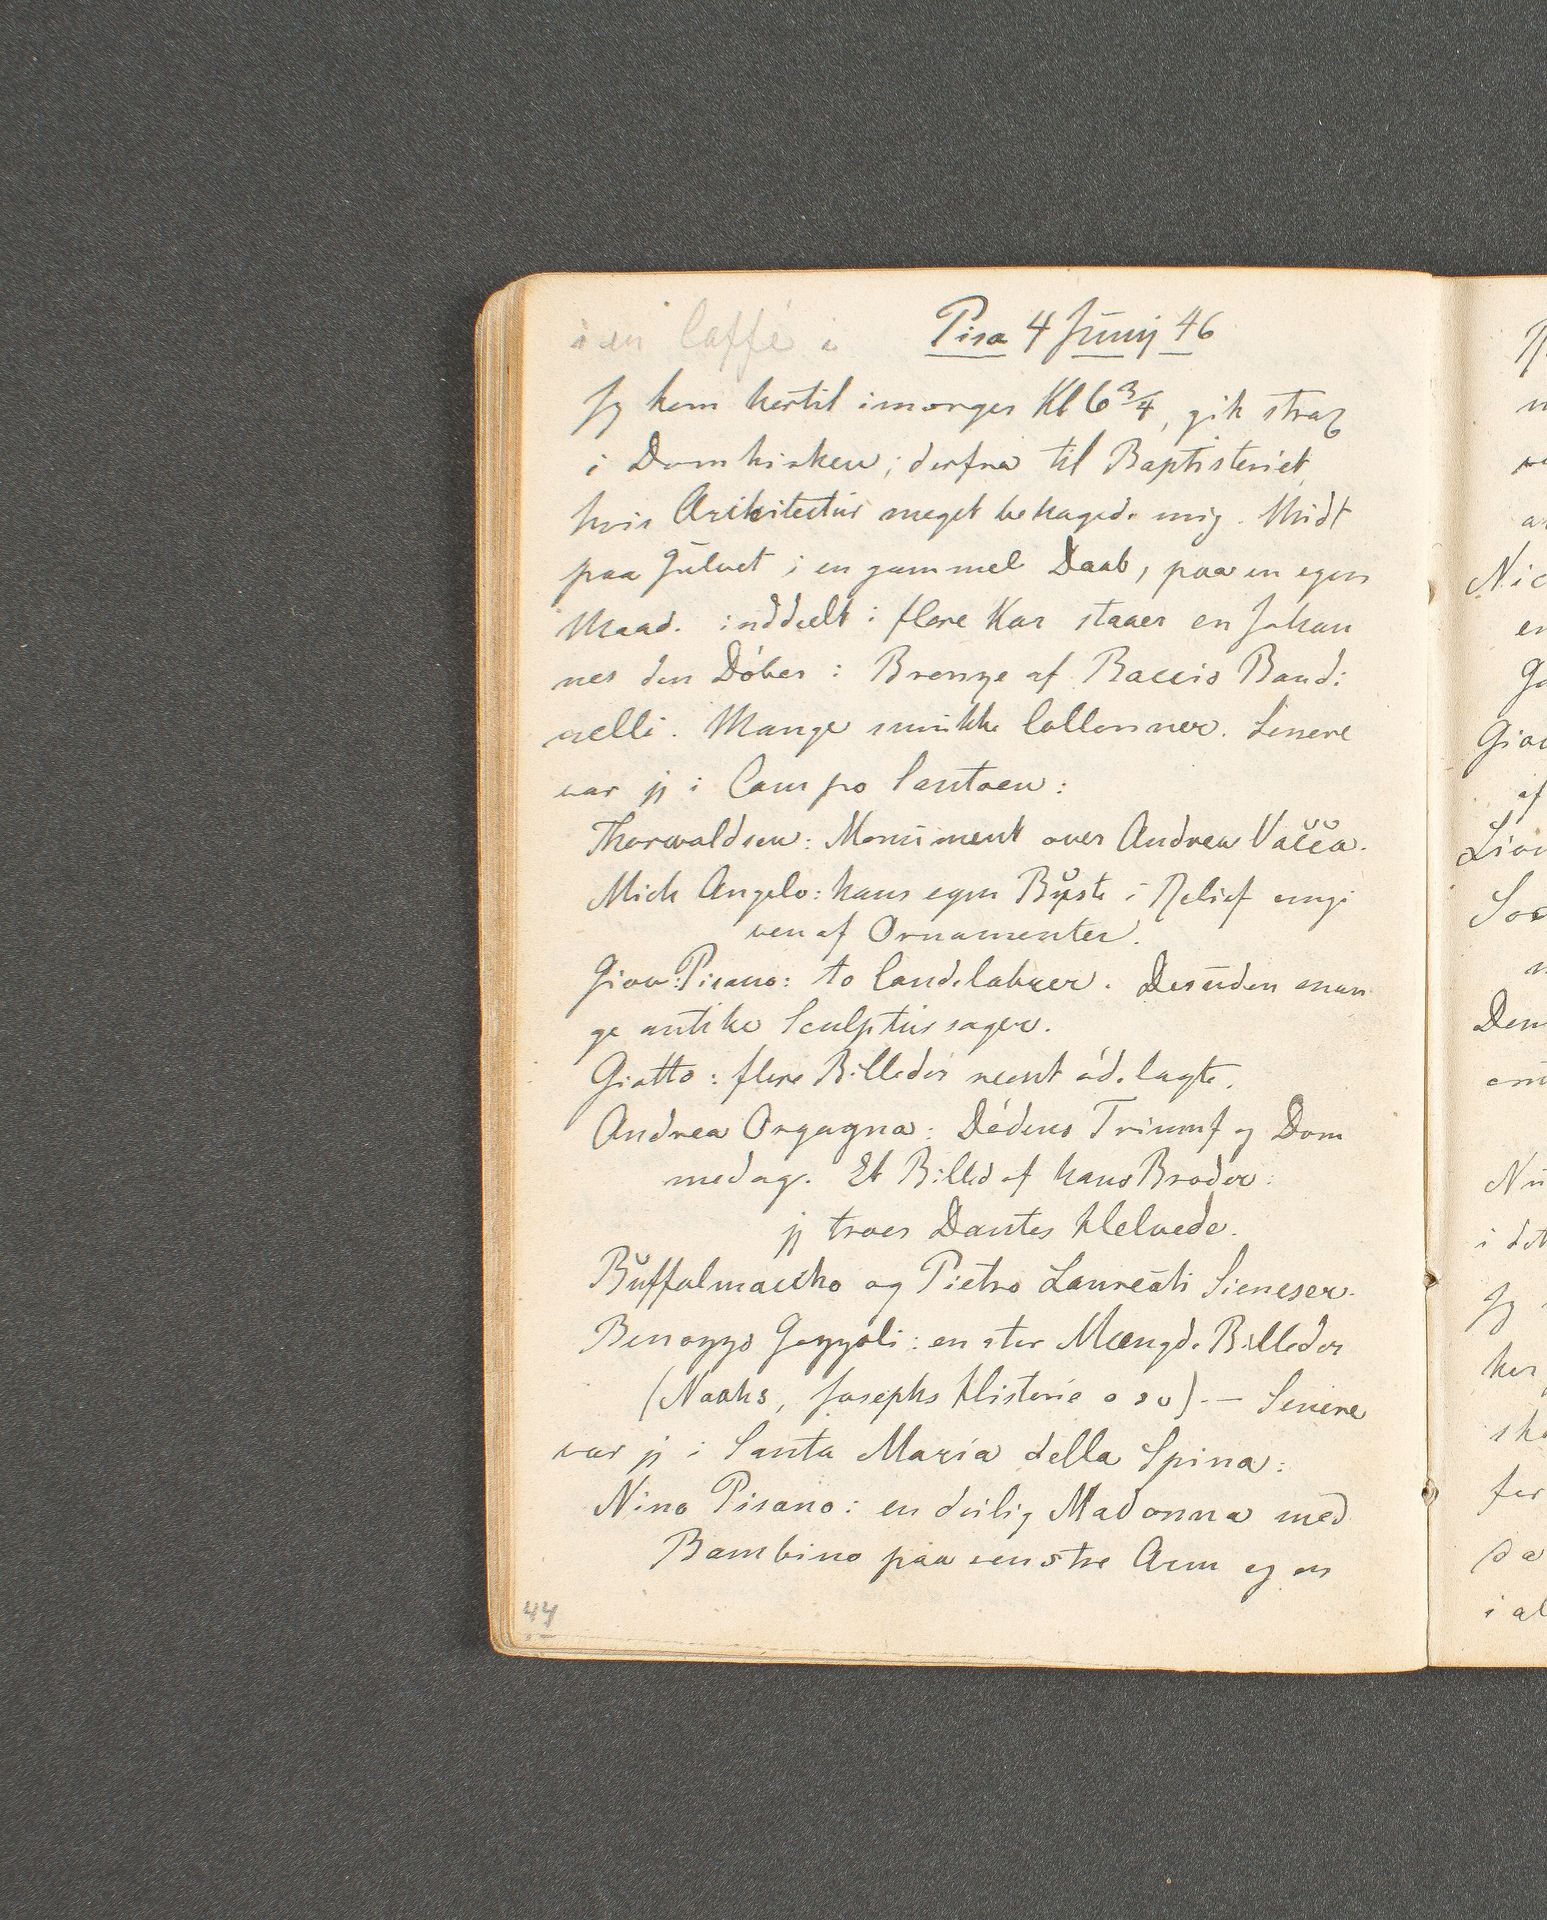 i en Caffé i Pisa 4 Junij 46
Jg kom hertil imorges Kl 6 3/4, gik strax
i Domkirken; derfra til Baptisteriet,
hvis Arckitectur meget behagede mig. Midt
paa Gulvet i en gammel Daab, paa en egen
Maade inddeelt i flere Kar staaer en Johan
nes den Döber i Bronze af Baccio Bandi
nelli. Mange smukke Collonner. Senere
var jg i Campo Santoen:
Thorwaldsen: Monument over Andrea Vacca.
Mich Angelo: hans egen Byste i Relief omgi
ven af Ornamenter.
Giov: Pisano: to Candelabrer. Desuden man
ge antike Sculptursager.
Giotto: flere Billeder næsten ödelagte.
Andrea Orgagna: Dödens Triumf og Dom
medag. Et Billed af hans Broder:
jg troer Dantes Helvede.
Buffalmaccho og Pietro Laureati Sieneser.
Benozzo Gozzoli: en stor Mængde Billeder
(Noahs, Josephs Historie o s v) - Senere
var jg i Santa Maria della Spina:
Nino Pisano: en deilig Madonna med
Bambino paa venstre Arm og en
44
Nic
en
Giov
af
Den
Nu
i det
Jg
her
for
da
i al